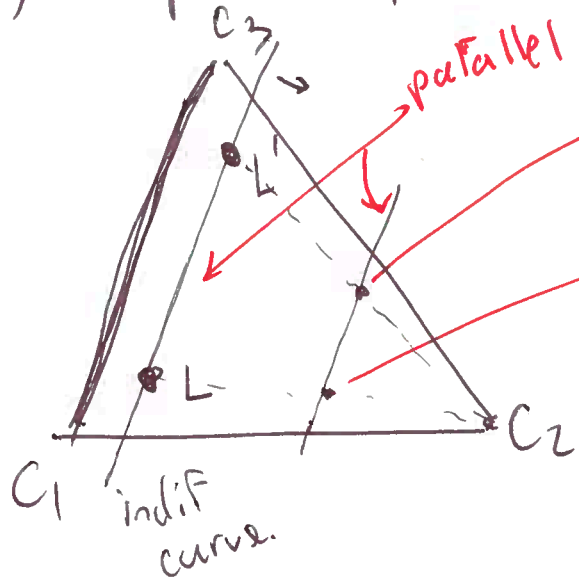 C3
parallel
L'
L
C1
C2
indif
curve.